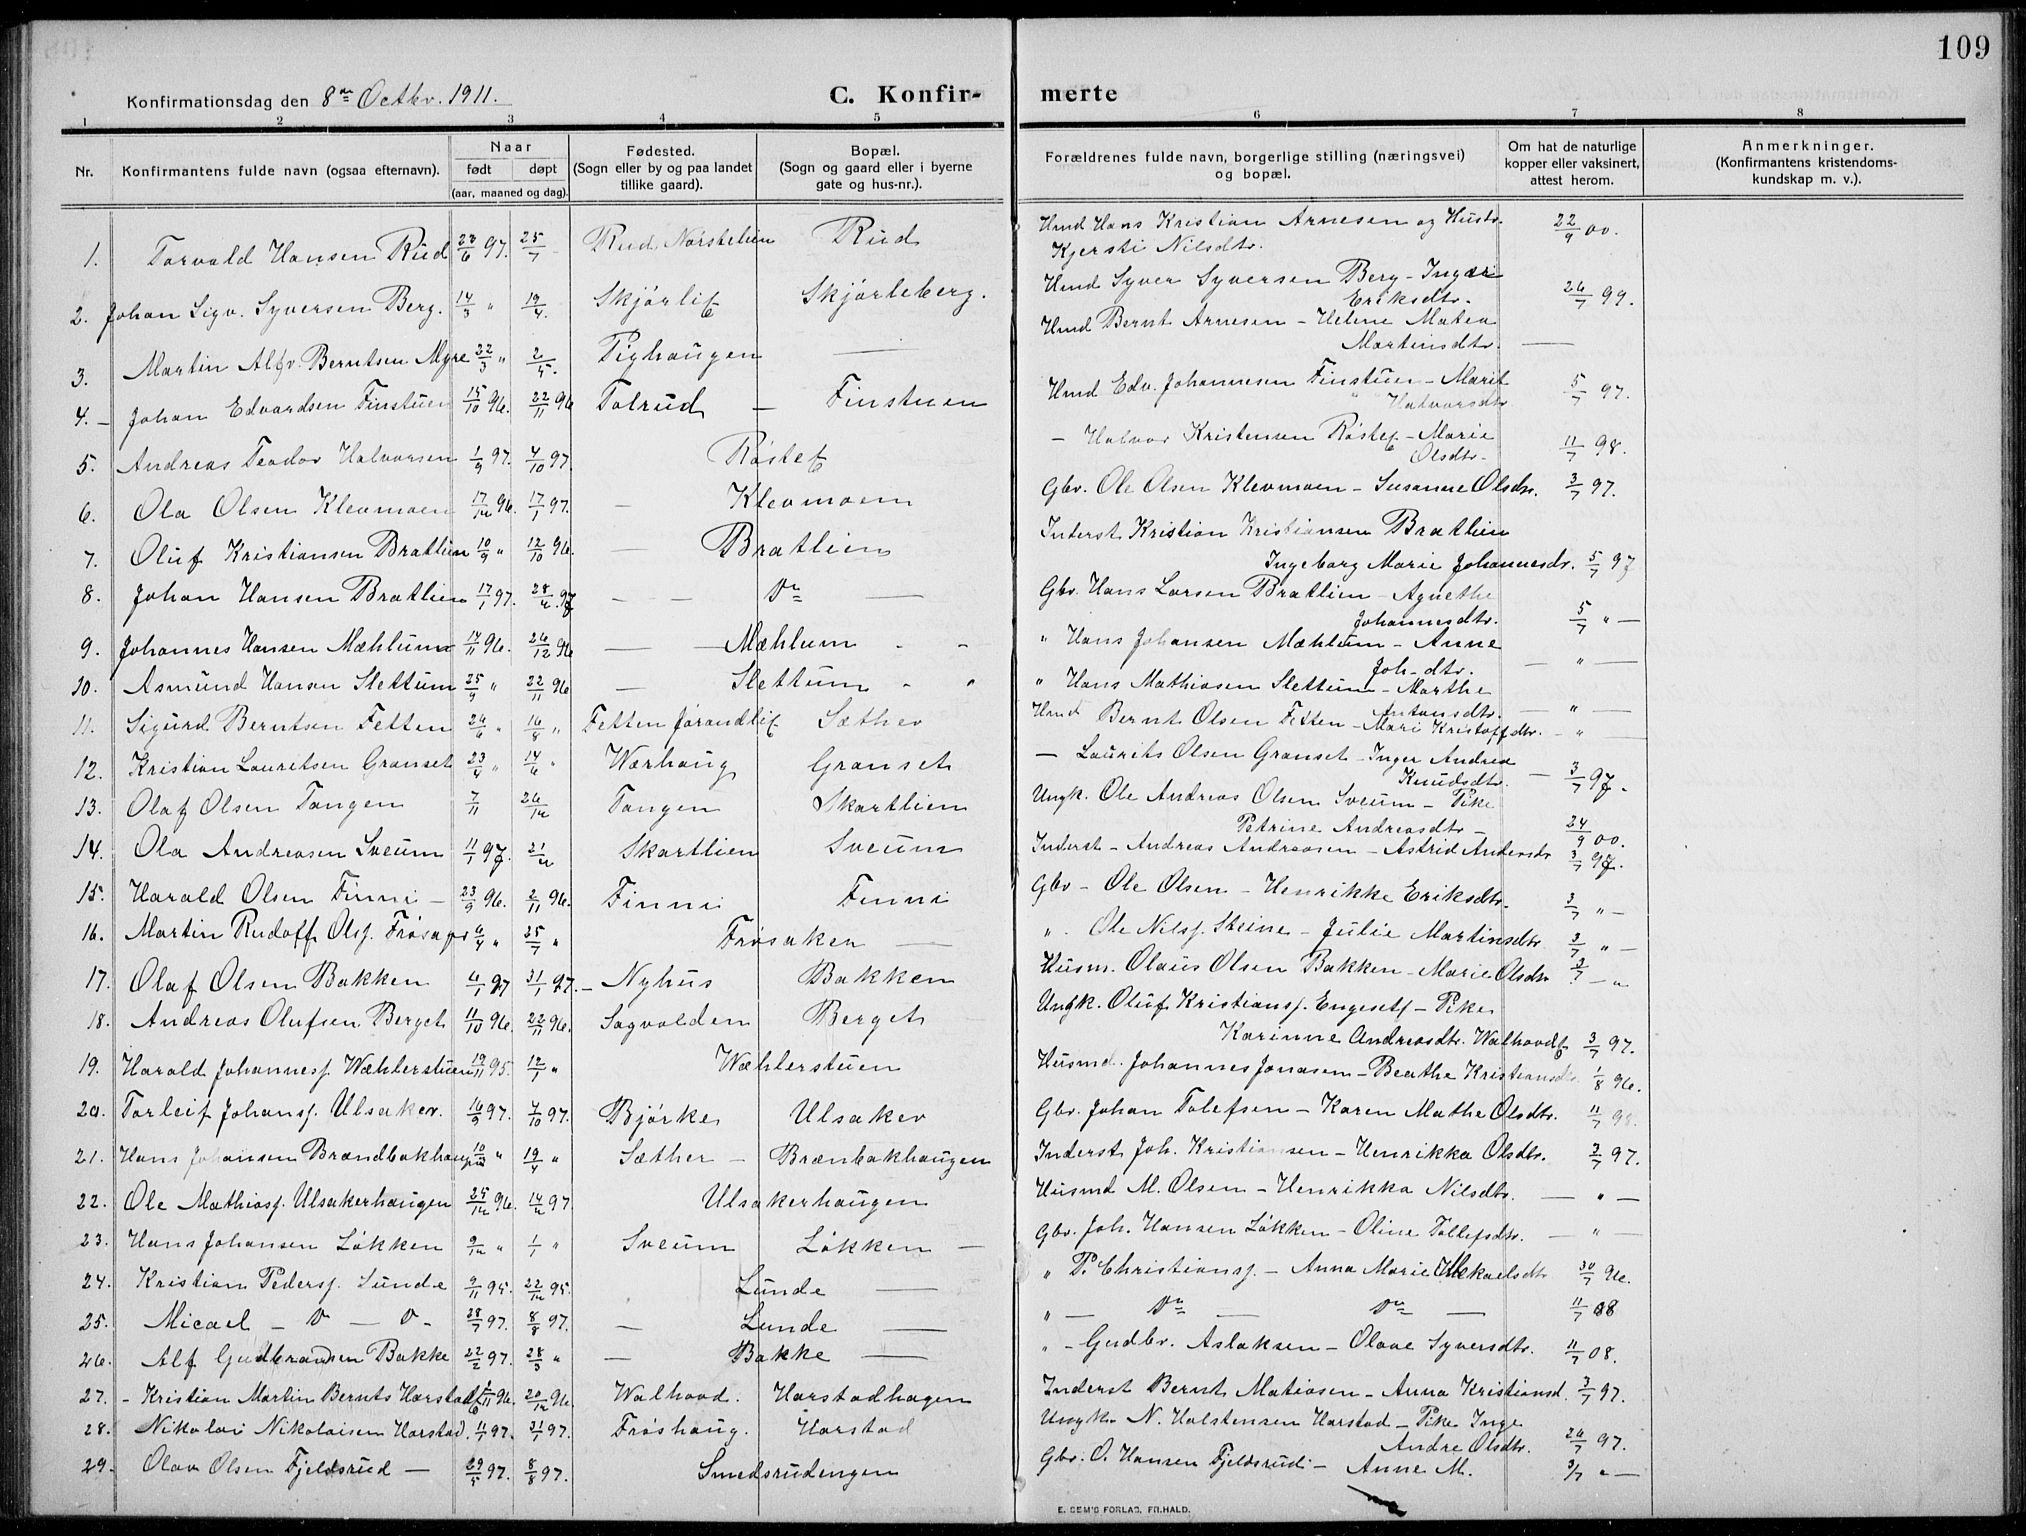 109
Konfirmationsdag den 8de Octbr. 1911.
C. Konfir-
merte
1 2 3 4 5 6 7 8
Nr.
Konfirmantens fulde navn (ogsaa efternavn).
Naar
født døpt
(aar, maaned og dag).
Fødested.
(Sogn eller by og paa landet
tillike gaard).
Bopæl.
(Sogn og gaard eller i byerne
gate og hus-nr.).
Forældrenes fulde navn, borgerlige stilling (næringsvei)
og bopæl.
Om hat de naturlige
kopper eller vaksinert,
attest herom.
Anmerkninger.
(Konfirmantens kristendoms-
kundskap m. v.).
1. Torvald Hansen Rud 23/6 97. 25/7 Rud Norstelien Rud Hmd Hans Kristian Arnesen og Hustr. 22/9 00.
Kjersti Nilsdtr.
2. Johan Sigv. Syversen Berg. 14/3 " 19/4. Skjørli Skjørleberg. Hmd Syver Syversen Berg - Ingeri 26/7 99.
Eriksdtr.
3. Martin Alfr. Berntsen Myre 22/3 " 2/5. Pighaugen — Hmd Bernt Arnesen - Helene Matea
Martinsdtr. —
4. - Johan Edvardsen Finstuen 15/10 96. 22/11 96 Tolrud — Finstuen Hmd Edv. Johannesen Finstuen - Marit 5/7 97.
Halvorsdtr
5. Andreas Teodor Halvorsen 1/9 97. 4/10 97. Røste — Halvor Kristensen Røste - Marie 11/7 98.
Olsdtr.
6. Ola Olsen Klevmoen 17/12 96. 17/1 97. — Klevmoen Gbr. Ole Olsen Klevmoen - Susanne Olsdtr. 3/7 97.
7. Oluf Kristiansen Bratlien 10/9 " 12/10 96. — Bratlien Inderst Kristian Kristiansen Bratlien
Ingeborg Marie Johannesdr. 5/7 97
8. Johan Hansen Bratlien 17/1 97. 28/2. 97 — — Do — Gbr. Hans Larsen Bratlien - Agnethe
Johannesdtr. 5/7 " —
9. Johannes Hansen Mæhlum 14/11 96. 26/12 96 — Mæhlum " Hans Johansen Mæhlum - Anne
Joh-dtr. — " —
10. Asmund Hansen Slettum 25/9 " 22/11 96 — Slettum " Hans Mathiasen Slettum - Marthe
Antonsdtr. — " —
11. Sigurd Berntsen Fetten 26/6 " 16/8 " Fetten Jørandli Sæther Hmd Bernt Olsen Fetten - Mari Kristoffdtr. - " —
12. Kristian Lauritsen Granset 23/4 " 14/6 " Wærhaug Granset — Laurits Olsen Granset - Inger Andrea
Knudsdtr. — 3/7 97.
13. Olaf Olsen Tangen 7/11 26/12 Tangen Skartlien Ungk. Ole Andreas Olsen Sveum - Pike
Petrine Andreasdtr - 24/9 00.
14. Ola Andreasen Sveum 11/1 97. 21/2 Skartlien Sveum Inderst - Andreas Andreasen - Astrid Andersdr 3/7 97.
15. Harald Olsen Finni - 23/9 96. 2/11 96. Finni Finni Gbr - Ole Olsen - Henrikke Eriksdtr. 3/7 " —
16. Martin Rudolf Ols. Frøsaker 6/4 " 25/7 " Frøsaken — " Ole Nils. Steine - Julie Martinsdtr. 3/7 " —
17. Olaf Olsen Bakken 6/1 97 31/1 97. - Nyhus Bakken Husm. Olaus Olsen Bakken - Marie Olsdtr 3/7 — "
18. Andreas Olufsen Berget 11/10 96. 22/11 96. Sagvolden Berget Ungk. Oluf Kristians. Engeset - Pike
Karinne Andreasdtr. Walhovd 3/7 97.
19. Harald Johannes. Wæhlerstuen 19/11 95. 12/1 " Wæhlerstuen Husmd. Johannes Jonasen - Beathe Kristiansdtr. 1/8 96.
20. Torleif Johans. Ulsaker. 16/9 97. 4/10 97. Bjørke Ulsaker Gbr. Johan Tolefsen - Karen Mathe Olsdtr. 11/7 98.
21. Hans Johansen Brændbakhaugen 10/12 " 19/4 " Sæther — Brænbakhaugen Inderst Joh. Kristiansen - Henrikka Olsdtr. 3/7 97.
22. Ole Mathias. Ulsakerhaugen 25/12 96. 14/2 97. Ulsakerhaugen Husmd M. Olsen - Henrikka Nilsdtr. — " —
23. Hans Johansen Løkken 9/12 " 1/1 " Sveum Løkken — Gbr. Joh. Hansen Løkken - Oline Tollefsdtr. — " —
24. Kristian Peders. Lunde 9/11 95. 22/12 95. Lunde — " P. Christians. - Anna Marie Mekaelsdtr 30/7 96.
25. Micael - D — O - 28/7 97. 8/8 97. — Lunde — " — Do — Do — 11/7 08
26. Alf Gudbrandsen Bakke 22/2 97. 28/3 " — Bakke — " - Gudbr. Aslaksen - Olave Syversdtr. 11/7 08.
27. - Kristian Martin Bernts Harstad 1/11 96. 20/12 96. Walhovd. Harstadhagen Inderst Bernt Matiasen - Anna Kristiansd. 3/7 97.
28. Nikolai Nikolaisen Harstad. 11/1 97. 31/1 97. Frøshaug. Harstad Ungk. N. Halstensen Harstad - Pike Inge
Andre Olsdtr. 26/7 97.
29. Olav Olsen Fjeldsrud — 29/5 97. 8/8 97. Smedsrudengen Gbr. O. Hansen Fjeldsrud - Anne M. 3/7 " —
E. SEM'S FORLAG, FR.HALD.